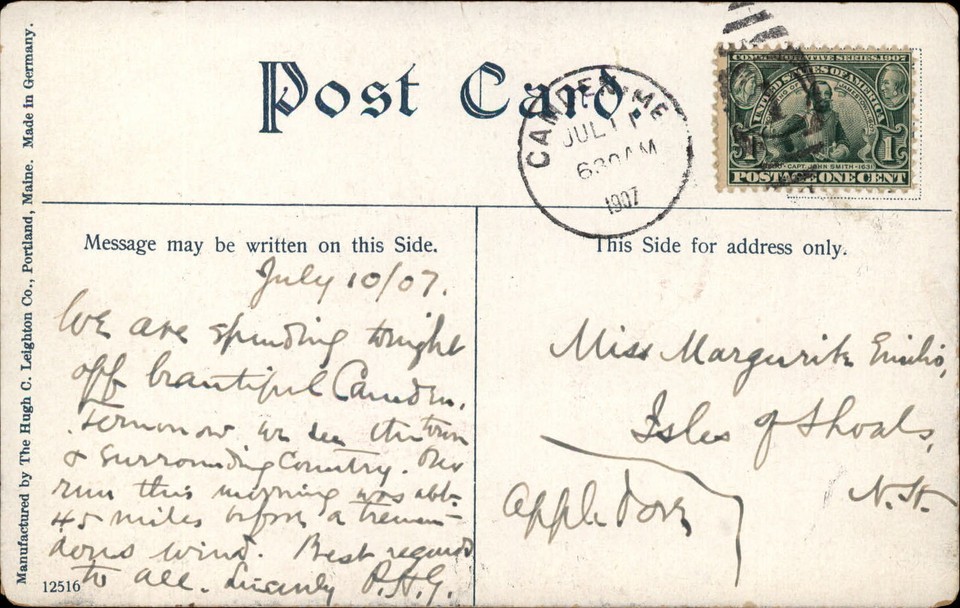 Post Card.
CAMDEN, ME.
JUL 11
6 30 AM
1907
COMMEMORATIVE SERIES, 1907
UNITED STATES OF AMERICA
FOUNDING OF JAMESTOWN
1580 · CAPT. JOHN SMITH · 1631
1 1
POSTAGE ONE CENT
Manufactured by The Hugh C. Leighton Co., Portland, Maine. Made in Germany.
Message may be written on this Side.
July 10/07.
We are spending tonight
off beautiful Camden.
Tomorrow we see the town
& Surrounding Country. Our
run this morning was abt.
45 miles before a tremen-
dous wind. Best regards
to all. Sincerely P.H.G.
12516
This Side for address only.
Miss Marguerite Emilio,
Isles of Shoals,
N.H.
Appledore